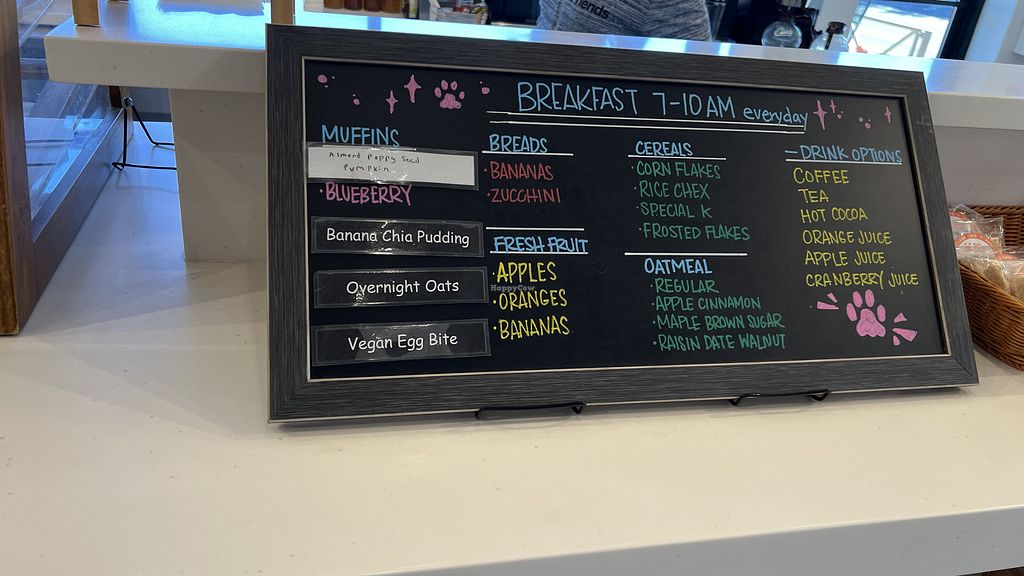 BREAKFAST 7-10 AM everyday
MUFFINS
Almond Poppy Seed
Pumpkin
·BLUEBERRY
Banana Chia Pudding
Overnight Oats
Vegan Egg Bite
BREADS
·BANANAS
·ZUCCHINI
FRESH FRUIT
·APPLES
·ORANGES
·BANANAS
CEREALS
·CORN FLAKES
·RICE CHEX
·SPECIAL K
·FROSTED FLAKES
OATMEAL
·REGULAR
·APPLE CINNAMON
·MAPLE BROWN SUGAR
·RAISIN DATE WALNUT
—DRINK OPTIONS
COFFEE
TEA
HOT COCOA
ORANGE JUICE
APPLE JUICE
CRANBERRY JUICE
HappyCow